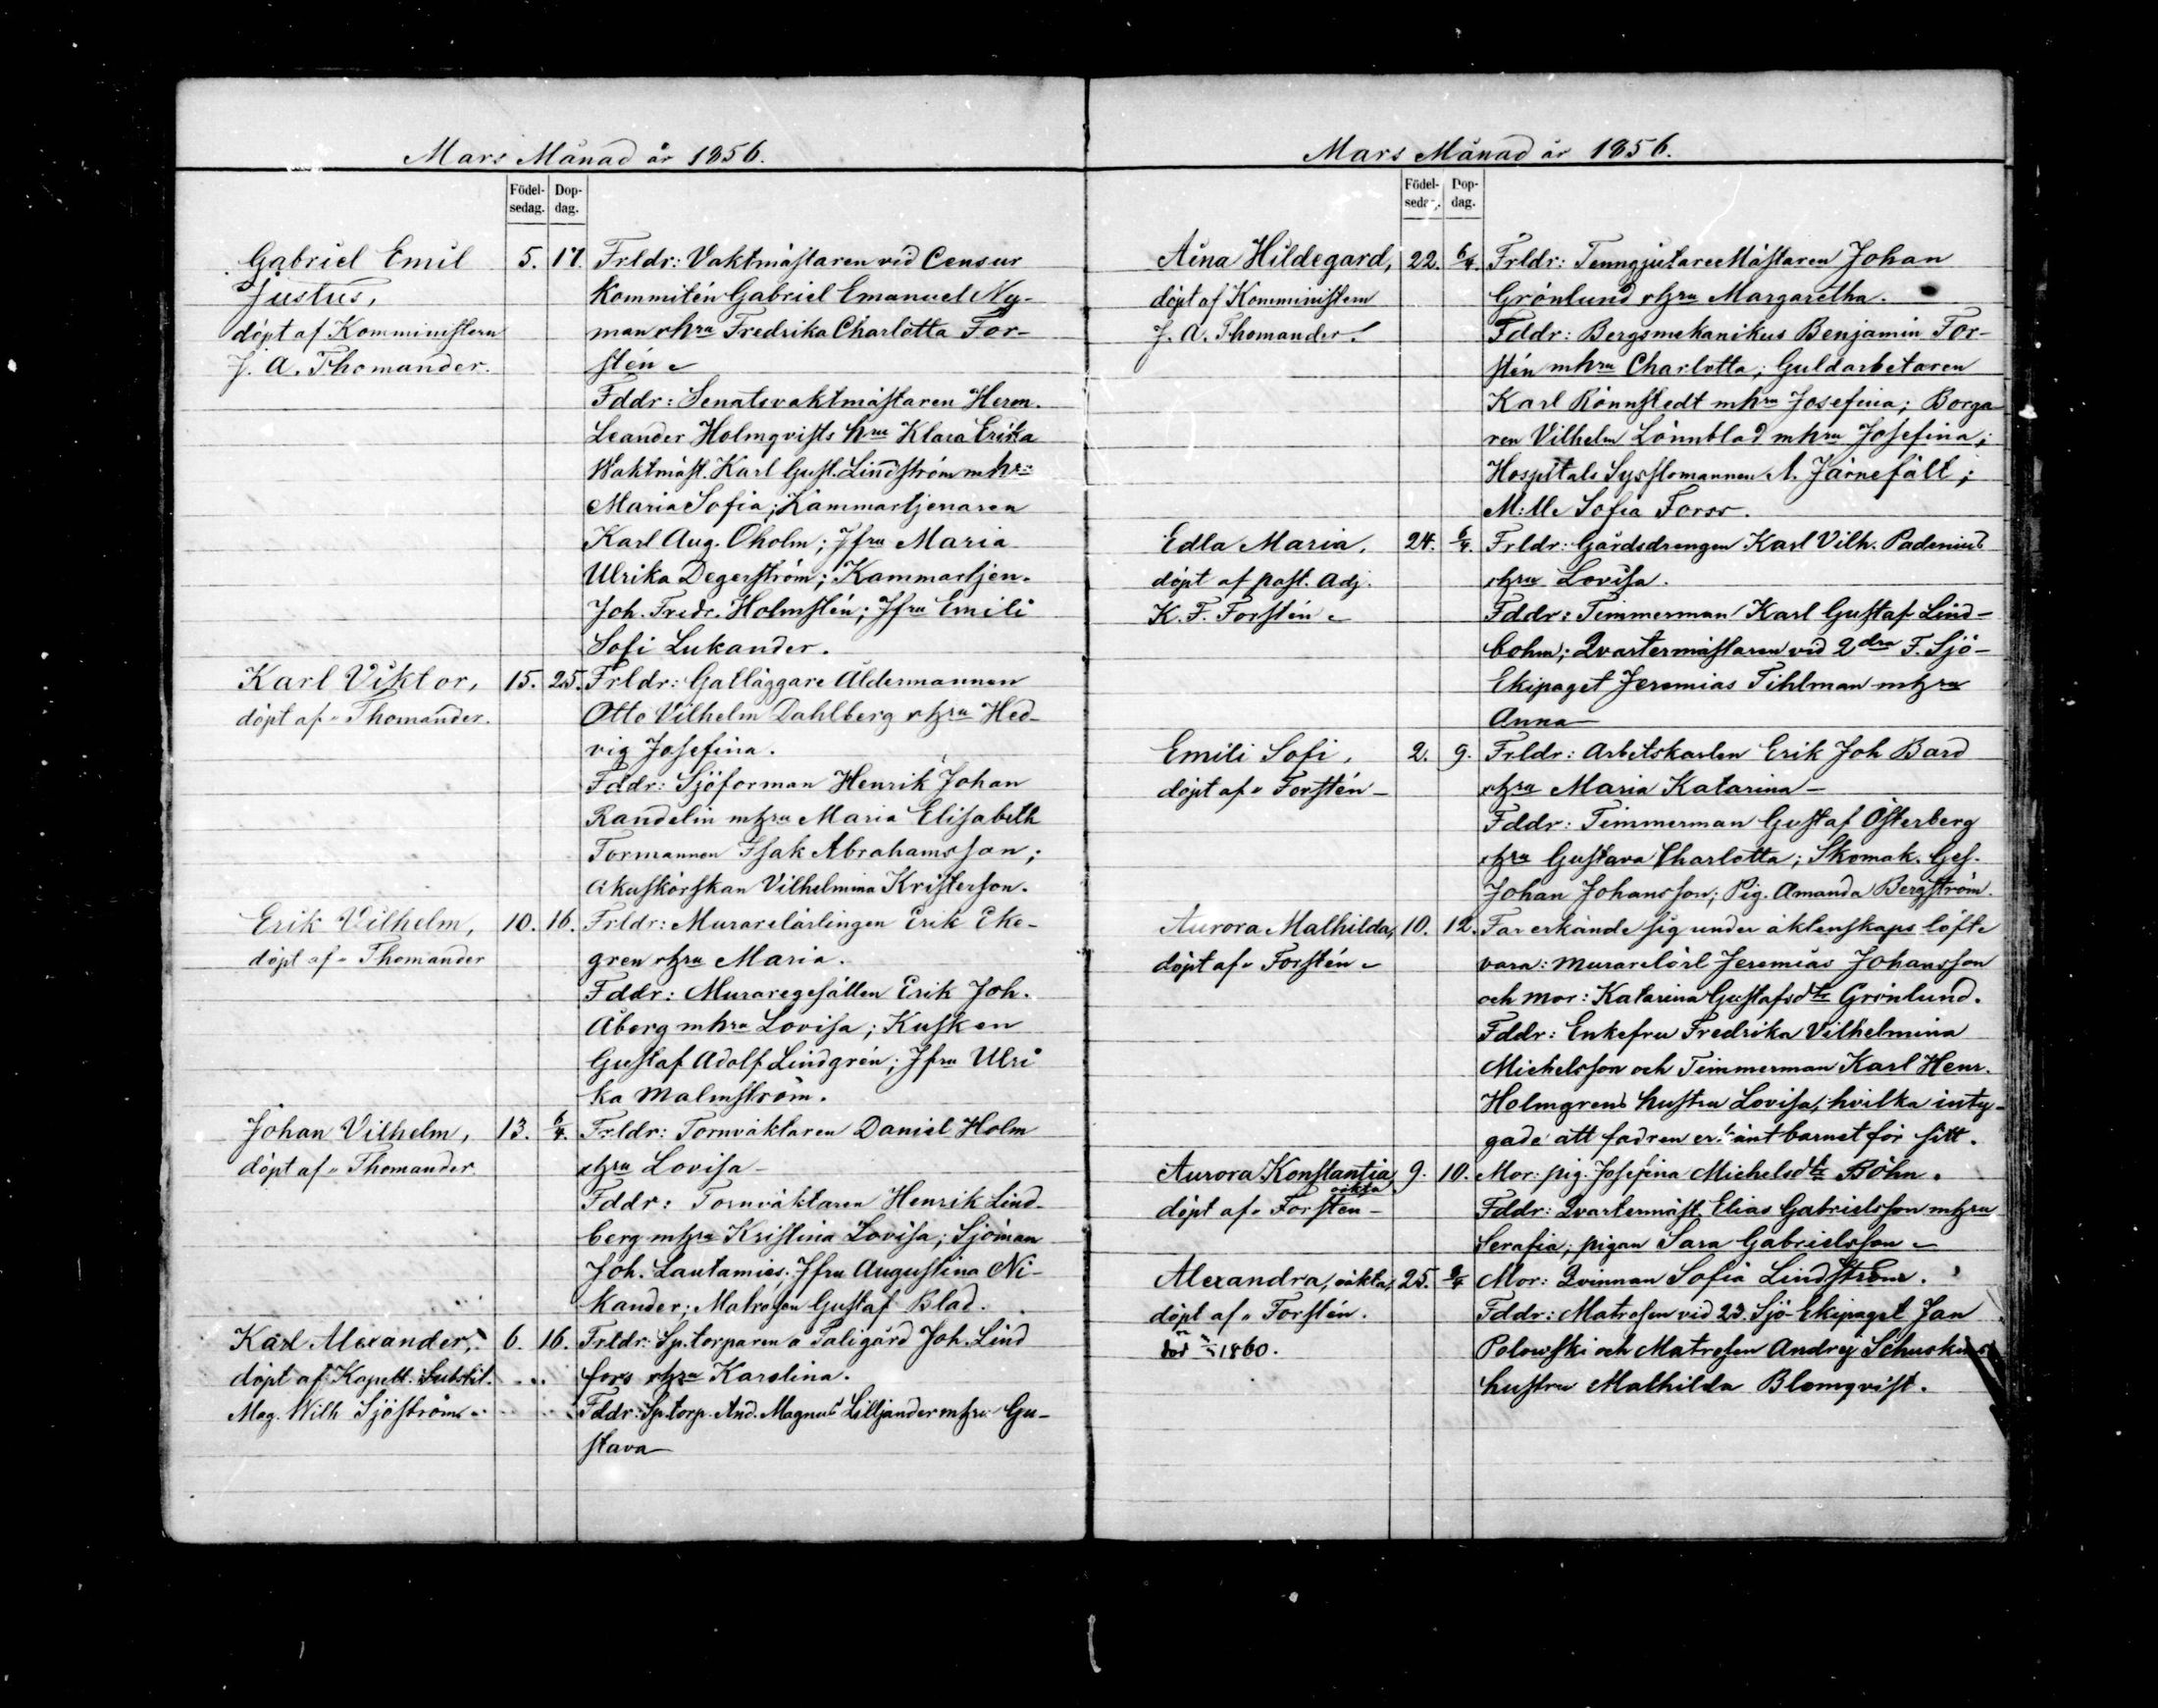 Mars Månad år 1856.
Födel-
sedag.
Dop-
dag.
Gabriel Emil
Justus,
döpt af Komministern
J. A. Thomander.
5. 17. Frldr: Vaktmästaren vid Censur
Kommitén Gabriel Emanuel Ny-
man o hru Fredrika Charlotta For-
stén
Fddr: Senatsvaktmästaren Herm.
Leander Holmqvists hru Klara Erika
Waktmäst. Karl Gust. Lindström m hru
Maria Sofia; Kammartjenaren
Karl Aug. Öholm; Jfru Maria
Ulrika Degerström; Kammartjen.
Joh. Fredr. Holmstén; Jfru Emili
Sofi Lukander.
Karl Viktor,
döpt af " Thomander.
15. 25. Frldr: Gatläggare Åldermannen
Otto Vilhelm Dahlberg o hru Hed-
vig Josefina.
Fddr: Sjöforman Henrik Johan
Randelin m hru Maria Elisabeth
Formannen Isak Abrahamsson;
Akuskörskan Vilhelmina Kristerson.
Erik Vilhelm,
döpt af " Thomander
10. 16. Frldr: Murarelärlingen Erik Eke-
gren o hru Maria.
Fddr: Muraregesällen Erik Joh.
Åberg m hru Lovisa; Kusken
Gustaf Adolf Lindgrén; Jfru Ulri
ka Malmström.
Johan Vilhelm,
döpt af " Thomander.
13. 6/4. Frldr: Tornväktaren Daniel Holm
o hru Lovisa
Fddr: Tornväktaren Henrik Lind-
berg m hru Kristina Lovisa; Sjöman
Joh. Lautamies. Jfru Augustina Ni-
kander; Matrosen Gustaf Blad.
Karl Alexander,
döpt af Kapell. Substit.
Mag. Wilh Sjöström
6. 16. Frldr: Sp. torparen å Taligård Joh. Lind
fors o hru Karolina.
Fddr: Sp. torp. And. Magnus Lilljander m hru Gu-
stava
Mars Månad år 1856.
Födel-
sedag.
Dop-
dag.
Aina Hildegard,
döpt af Komministern
J. A. Thomander.
22. 6/4. Frldr: TenngjutareMästaren Johan
Grönlund o hru Margaretha.
Fddr: Bergsmekanikus Benjamin For-
stén m hru Charlotta; Guldarbetaren
Karl Rönnstedt m hru Josefina; Borga
ren Vilhelm Lönnblad m hru Josefina;
Hospitals Sysslomannen A. Järnefält;
M:lle Sofia Forss.
Edla Maria,
döpt af past. Adj.
K. F. Forstén
24. 6/4. Frldr: Gårdsdrengen Karl Vilh. Padenius
o hru Lovisa.
Fddr: Timmerman Karl Gustaf Lind-
bohm; Qvartermästaren vid 2dra F. Sjö-
Ekipaget Jeremias Tihlman m hru
Anna
Emili Sofi,
döpt af " Forstén
2. 9. Frldr: Arbetskarlen Erik Joh Bard
o hru Maria Katarina
Fddr: Timmerman Gustaf Österberg
o hru Gustava Charlotta; Skomak. Ges.
Johan Johansson; Pig. Amanda Bergström.
Aurora Mathilda,
döpt af " Forstén
10. 12. Far erkände sig under äktenskaps löfte
vara: murarelärl Jeremias Johansson
och mor: Katarina Gustafsdtr Grönlund.
Fddr: Enkefru Fredrika Vilhelmina
Michelsson och Timmerman Karl Henr.
Holmgrens hustru Lovisa, hvilka inty-
gade att fadren erkänt barnet för sitt.
Aurora Konstantia
oäkta
döpt af " Forstén
9. 10. Mor: pig. Josefina Michelsdtr Böhn.
Fddr: Qvartermäst. Elias Gabrielsson m hru
Serafia; pigan Sara Gabrielsson
Alexandra, oäkta,
döpt af " Forstén.
död 1860.
25. Mor: Qvinnan Sofia Lindström.
Fddr: Matrosen vid 23. Sjö-Ekipaget Jan
Polowski och Matrosen Andrej
hustru Mathilda Blomqvist.